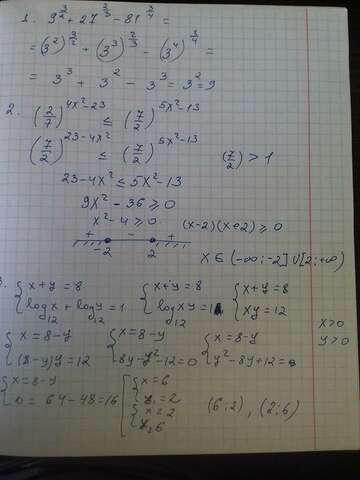 1. 9^{3/2} + 27^{2/3} - 81^{3/4} =
= (3^2)^{3/2} + (3^3)^{2/3} - (3^4)^{3/4} =
= 3^3 + 3^2 - 3^3 = 3^2 = 9
2. (2/7)^{4x^2-23} ≤ (7/2)^{5x^2-13}
(7/2)^{23-4x^2} ≤ (7/2)^{5x^2-13} (7/2) > 1
23-4x^2 ≤ 5x^2-13
9x^2 - 36 ≥ 0
x^2-4 ≥ 0 (x-2)(x+2) ≥ 0
+ - +
-2 2 x ∈ (-∞;-2] ∪ [2;+∞)
3. { x+y=8 { x+y=8 { x+y=8
log_{12} x + log_{12} y = 1 log_{12} xy = 1 xy=12 x>0
y>0
{ x=8-y { x=8-y { x=8-y
(8-y)y=12 8y-y^2-12=0 y^2-8y+12=0
{ x=8-y [ { x=6
D = 64-48=16 y_1=2 (6;2), (2;6)
{ x=2
y_2 6